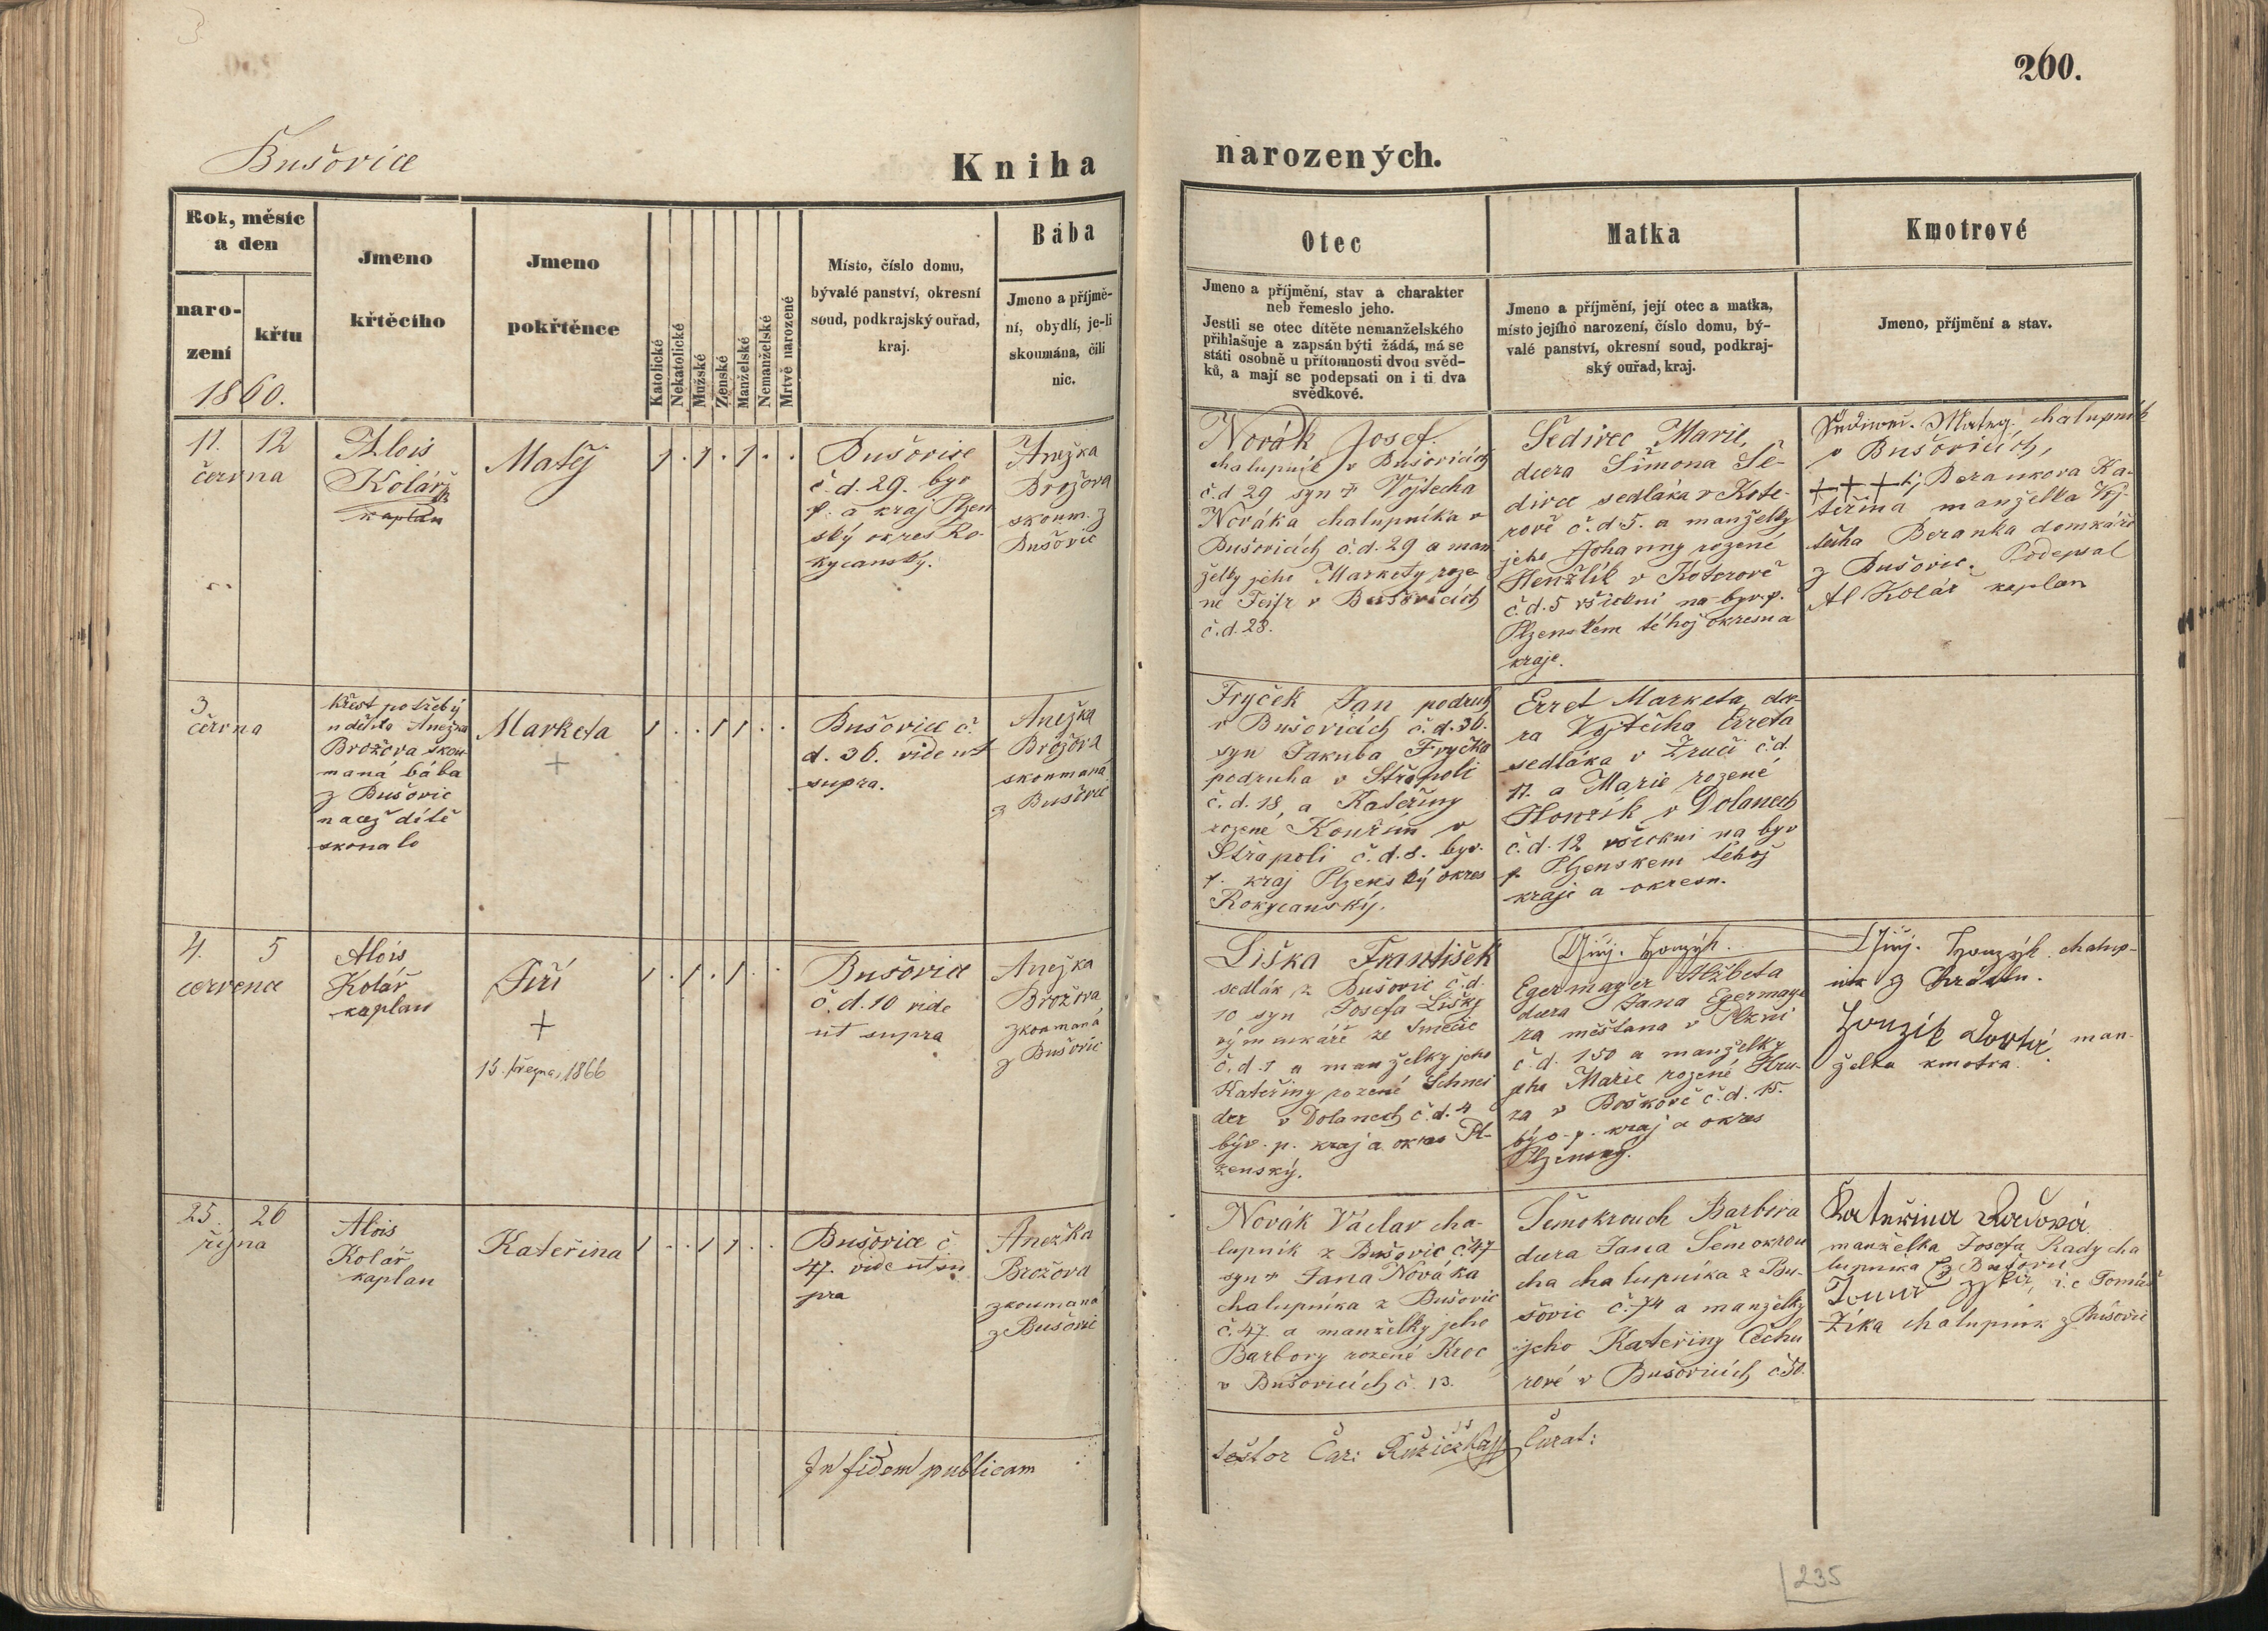 260.
Bušovice
Kniha narozených.
Rok, měsíc
a den
naro-
zení
křtu
1860.
Jmeno
křtěcího
Jmeno
pokřtěnce
Katolické
Nekatolické
Mužské
Zenské
Manželské
Nemanželské
Mrtvě narozené
Místo, číslo domu,
bývalé panství, okresní
soud, podkrajský ouřad,
kraj.
Bába
Jmeno a příjmě-
ní, obydlí, je-li
skoumána, čili
nic.
Otec
Jmeno a příjmění, stav a charakter
neb řemeslo jeho.
Jestli se otec dítěte nemanželského
přihlašuje a zapsán býti žádá, má se
státi osobně u přítomnosti dvou svěd-
ků, a mají se podepsati on i ti dva
svědkové.
Matka
Jmeno a příjmění, její otec a matka,
místo jejího narození, číslo domu, bý-
valé panství, okresní soud, podkraj-
ský ouřad, kraj.
Kmotrové
Jmeno, příjmění a stav.
11. 12
června
Alois
Kolář
kaplan
Matěj
1 . 1 . 1 . .
Bušovice
č. d. 29. byv
p. a kraj Plzen
ský okres Ro-
kycanský.
Anežka
Brožova
skoum. z
Bušovic
Novák Josef.
chalupník v Bušovicích
č.d 29 syn + Vojtecha
Nováka chalupníka v
Bušovicích č.d. 29 a man
želky jeho Markety roze-
né Feifr v Bušovicích
č.d. 28.
Šedivec Marie,
dcera Šimona Še-
divce sedláka v Kote-
rově č.d. 5. a manželky
jeho Johanny rozené
Henžlik v Koterově
č.d. 5 všickni na byv. p.
Plzenském téhož okresu a
kraje.
Mateg. chalupník
v Bušovicích,
+++ Berankova Ka-
teřina manželka Voj-
těcha Beranka domkáře
z Bušovic. Podepsal
Al Kolář kaplan
3
června
křest potřebý
udělila Anežka
Brožova skou-
maná bába
z Bušovic
načež dítě
skonalo
Marketa
+
1 . . 1 1 . .
Bušovice č.
d. 36. vide ut
supra.
Anežka
Brožova
skoumaná
z Bušovic
Fryček Jan podruh
v Bušovicích č.d. 36.
syn Jakuba Fryčka
podruha v Střapoli
č.d. 18 a Kateřiny
rozené Kouřim v
Střapoli č.d. 8. byv.
p. kraj Plzenský okres
Rokycanský.
Erret Marketa, dce-
ra Vojtěcha Erreta
sedláka v Zruči č.d.
11. a Marie rozené
Honzík v Dolanech
č.d. 12 všickni na byv
p. Plzenskem téhož
kraje a okresu.
4. 5
července
Alois
Kolář
kaplan
Jiří
+
15. března, 1866
1 . 1 . 1 . .
Bušovice
č.d. 10 vide
ut supra
Anežka
Brožova
zkoumaná
z Bušovic
Liška František
sedlák z Bušovic č.d.
10 syn Josefa Lišky
výminkáře ze Smečic
č.d. 1 a manželky jeho
Kateřiny rozené Schnei
der v Dolanech č.d. 4
býv. p. kraj a okres Pl-
zenský.
Egermayer Alžbeta
dcera Jana Egermaye
ra měšťana v Plzni
č.d. 150 a manželky
jeho Marie rozené Hru-
za v Boškově č.d. 15.
býv. p. kraj a okres
Plzenský.
chalup-
ník z
man-
želka kmotra.
25. 26
října
Alois
Kolář
kaplan
Kateřina
1 . . 1 1 . .
Bušovice č.
47. vide ut su
pra
Anežka
Brožova
zkoumaná
z Bušovic
Novák Václav cha-
lupník z Bušovic č.47
syn + Jana Nováka
chalupníka z Bušovic
č.47 a manželky jeho
Barbory rozené Kroc
v Bušovicích č. 13.
Šemokrouch Barbora
dcera Jana Šemokrou
cha chalupníka z Bu-
šovic č.74 a manželky
jeho Kateřiny Čechu
rové v Bušovicích č.50.
Kateřina Radová
manželka Josefa Rady cha
lupníka z Bušovic
i. e Tomáš
Žika chalupník z Bušovic
In fidem publicam
testor Car: Růžička Curat:
235